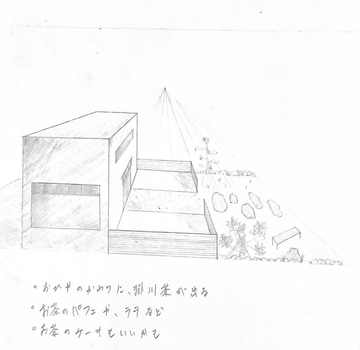 ・おかやのかわりに、掛川茶が出る
・お茶のパフェや、ラテなど
・お茶のケーキもいいかも